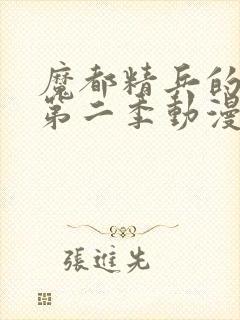 魔都精兵的
第二季動漫
張進先